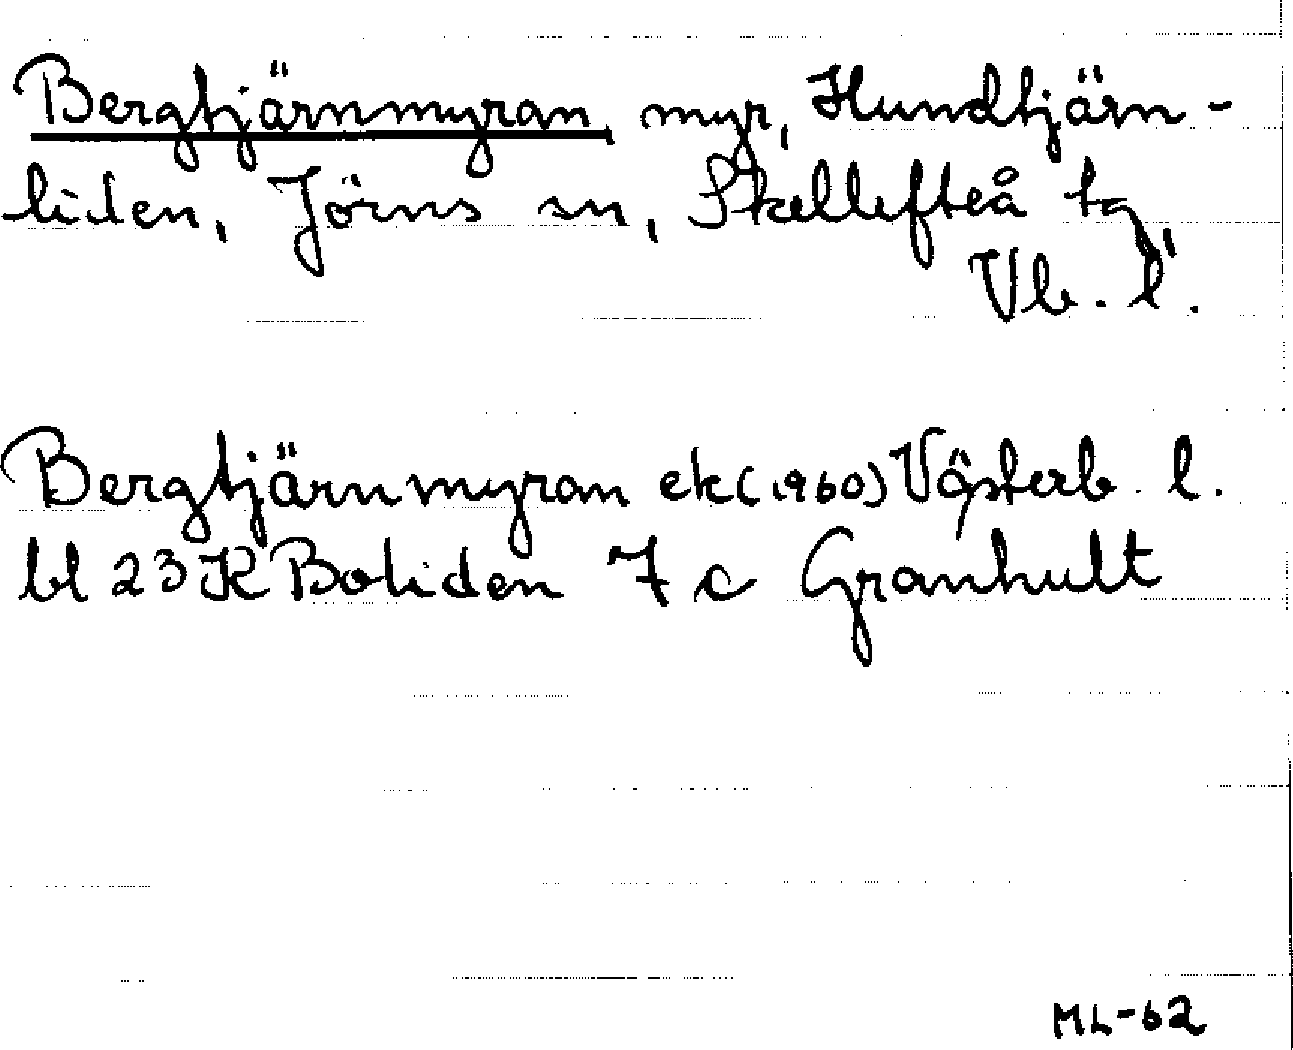 Bergtjärnmyran, myr, Hundtjärn-
liden, Jörns sn, Skellefteå tg,
Vb. l.
Bergtjärnmyran ek (1960) Västerb. l.
bl 23 K Boliden 7 c Granhult
ML-62